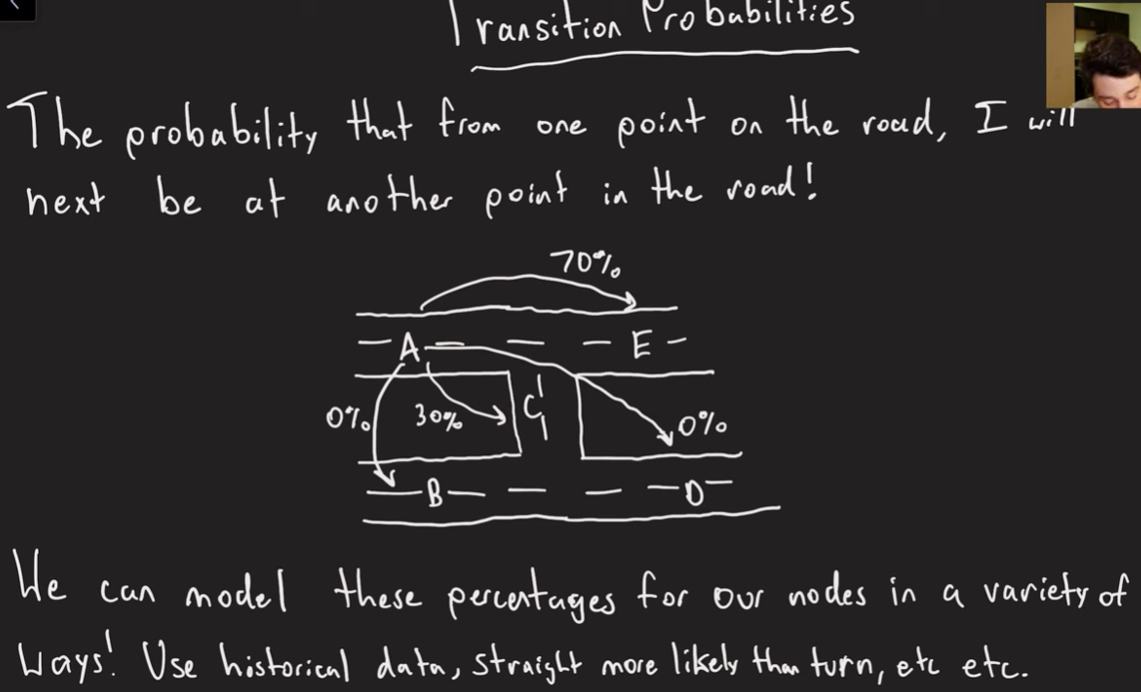 Transition Probabilities
The probability that from one point on the road, I will
next be at another point in the road!
70%
A E
0% 30% C 0%
B D
We can model these percentages for our nodes in a variety of
ways! Use historical data, straight more likely than turn, etc etc.